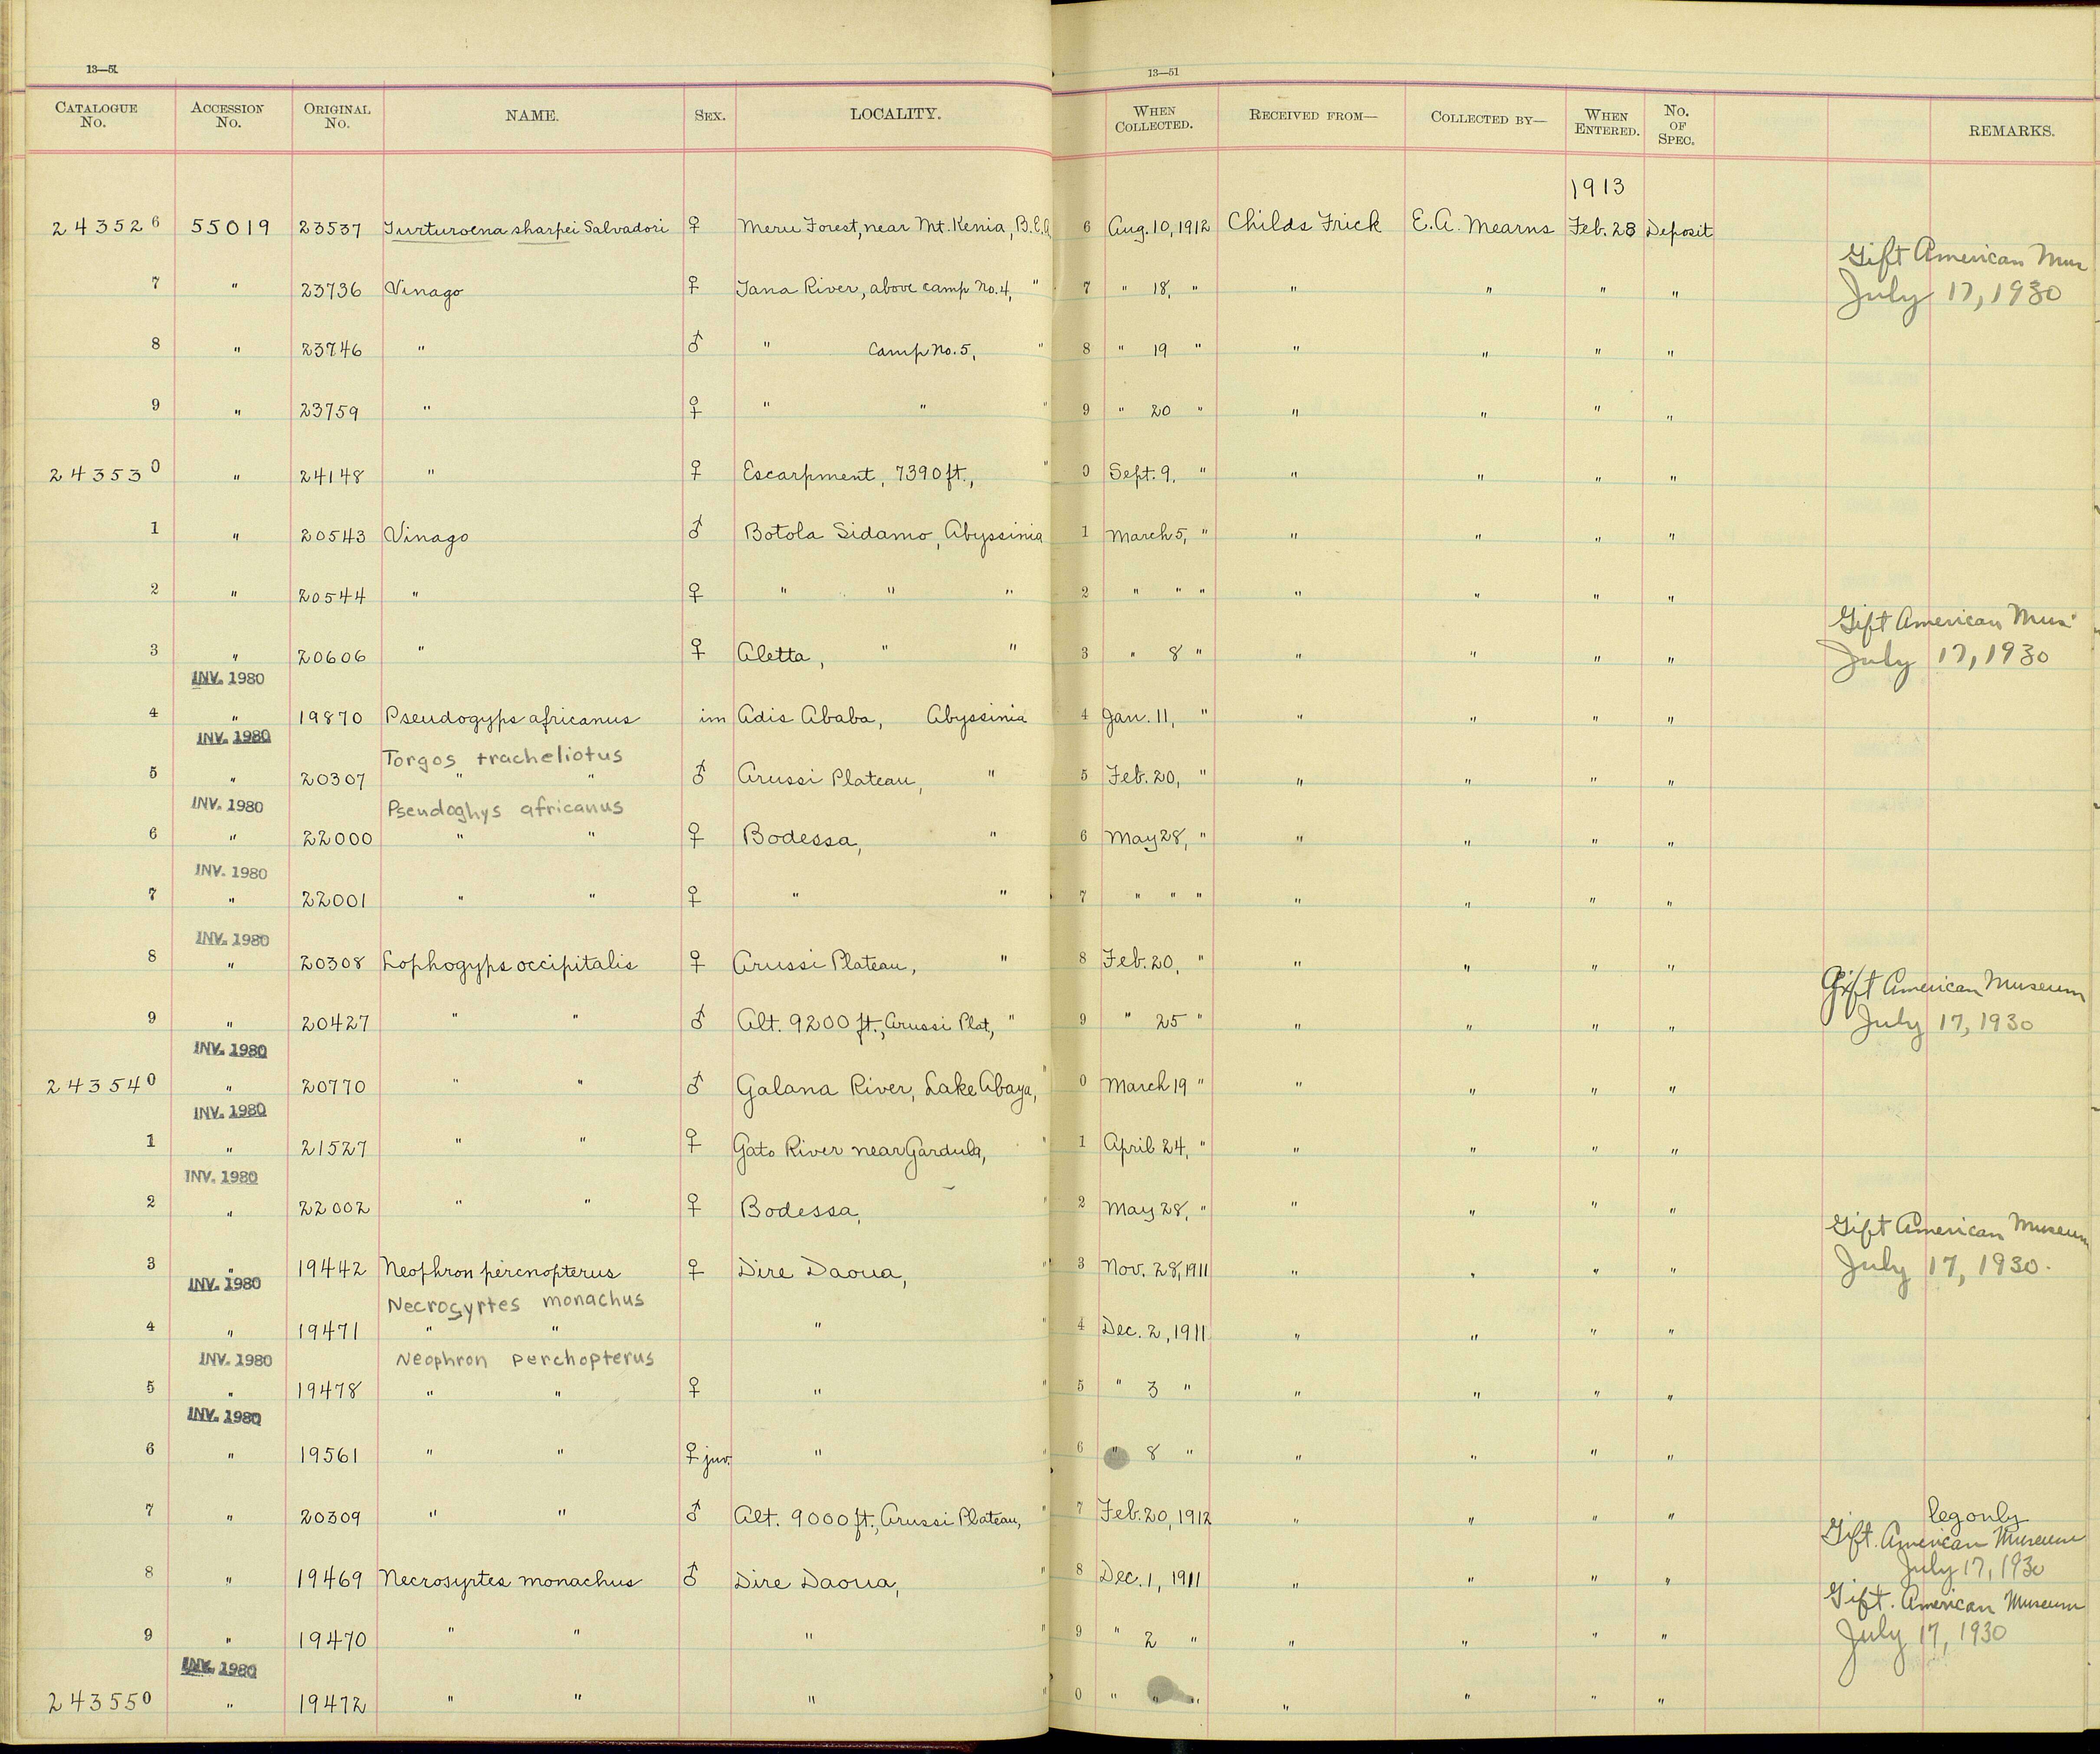 13—51
13—51
CATALOGUE No. ACCESSION No. ORIGINAL No. NAME. SEX. LOCALITY. WHEN COLLECTED. RECEIVED FROM— COLLECTED BY— WHEN ENTERED. No. OF SPEC. REMARKS.
1913
243526 55019 23537 Turturoena sharpei Salvadori ♀ Meru Forest, near Mt. Kenia, B.E.A 6 Aug. 10, 1912 Childs Frick E.A. Mearns Feb. 28 Deposit
Gift American Mus
7 " 23736 Vinago ♀ Tana River, above camp No. 4, " 7 " 18, " " " " " July 17, 1930
8 " 23746 " ♂ " Camp No. 5, " 8 " 19 " " " " "
9 " 23759 " ♀ " " " 9 " 20 " " " " "
243530 " 24148 " ♀ Escarpment, 7390 ft., " 0 Sept. 9, " " " " "
1 " 20543 Vinago ♂ Botola Sidamo, Abyssinia 1 March 5, " " " " "
2 " 20544 " ♀ " " " 2 " " " " " " "
Gift American Mus
3 " 20606 " ♀ Aletta, " " 3 " 8 " " " " " July 17, 1930
INV. 1980
4 " 19870 Pseudogyps africanus im Adis Ababa, Abyssinia 4 Jan. 11, " " " " "
INV. 1980
Torgos tracheliotus
5 " 20307 " " ♂ Arussi Plateau, " 5 Feb. 20, " " " " "
INV. 1980 Pseudoghys africanus
6 " 22000 " " ♀ Bodessa, " 6 May 28, " " " " "
INV. 1980
7 " 22001 " " ♀ " " 7 " " " " " " "
INV. 1980
8 " 20308 Lophogyps occipitalis ♀ Arussi Plateau, " 8 Feb. 20, " " " " "
Gift American Museum
9 " 20427 " " ♂ Alt. 9200 ft., Arussi Plat, " 9 " 25 " " " " " July 17, 1930
INV. 1980
243540 " 20770 " " ♂ Galana River, Lake Abaya, " 0 March 19 " " " " "
INV. 1980
1 " 21527 " " ♀ Gato River near Gardula, " 1 April 24, " " " " "
INV. 1980
2 " 22002 " " ♀ Bodessa, " 2 May 28, " " " " "
Gift American Museum
3 " 19442 Neophron percnopterus ♀ Dire Daoua, " 3 Nov. 28, 1911 " " " " July 17, 1930.
INV. 1980
Necrosyrtes monachus
4 " 19471 " " " " 4 Dec. 2, 1911 " " " "
INV. 1980 Neophron perchopterus
5 " 19478 " " ♀ " " 5 " 3 " " " " "
INV. 1980
6 " 19561 " " ♀ juv. " " 6 " 8 " " " " "
7 " 20309 " " ♂ Alt. 9000 ft., Arussi Plateau, " 7 Feb. 20, 1912 " " " " leg only
Gift. American Museum
July 17, 1930
8 " 19469 Necrosyrtes monachus ♂ Dire Daoua, " 8 Dec. 1, 1911 " " " "
Gift. American Museum
9 " 19470 " " " " 9 " 2 " " " " " July 17, 1930
INV. 1980
243550 " 19472 " " " " 0 " " " " " " "